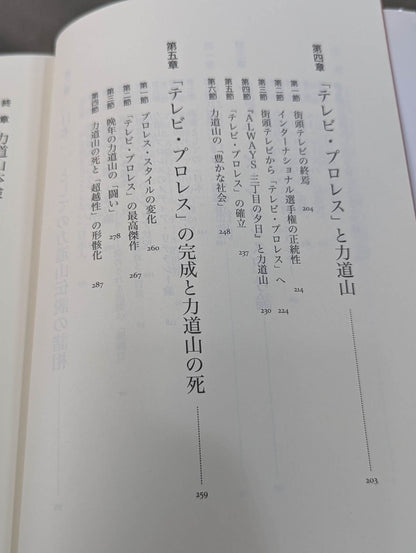 第四章　「テレビ・プロレス」と力道山 203
第一節　街頭テレビの終焉 204
第二節　インターナショナル選手権の正統性 214
第三節　街頭テレビから「テレビ・プロレス」へ 224
第四節　『ALWAYS 三丁目の夕日』と力道山 230
第五節　「テレビ・プロレス」の確立 237
第六節　力道山の「豊かな社会」 248
第五章　「テレビ・プロレス」の完成と力道山の死 259
第一節　プロレス・スタイルの変化 260
第二節　「テレビ・プロレス」の最高傑作 267
第三節　晩年の力道山の「闘い」 278
第四節　力道山の死と「超越性」の形骸化 287
終章　力道山